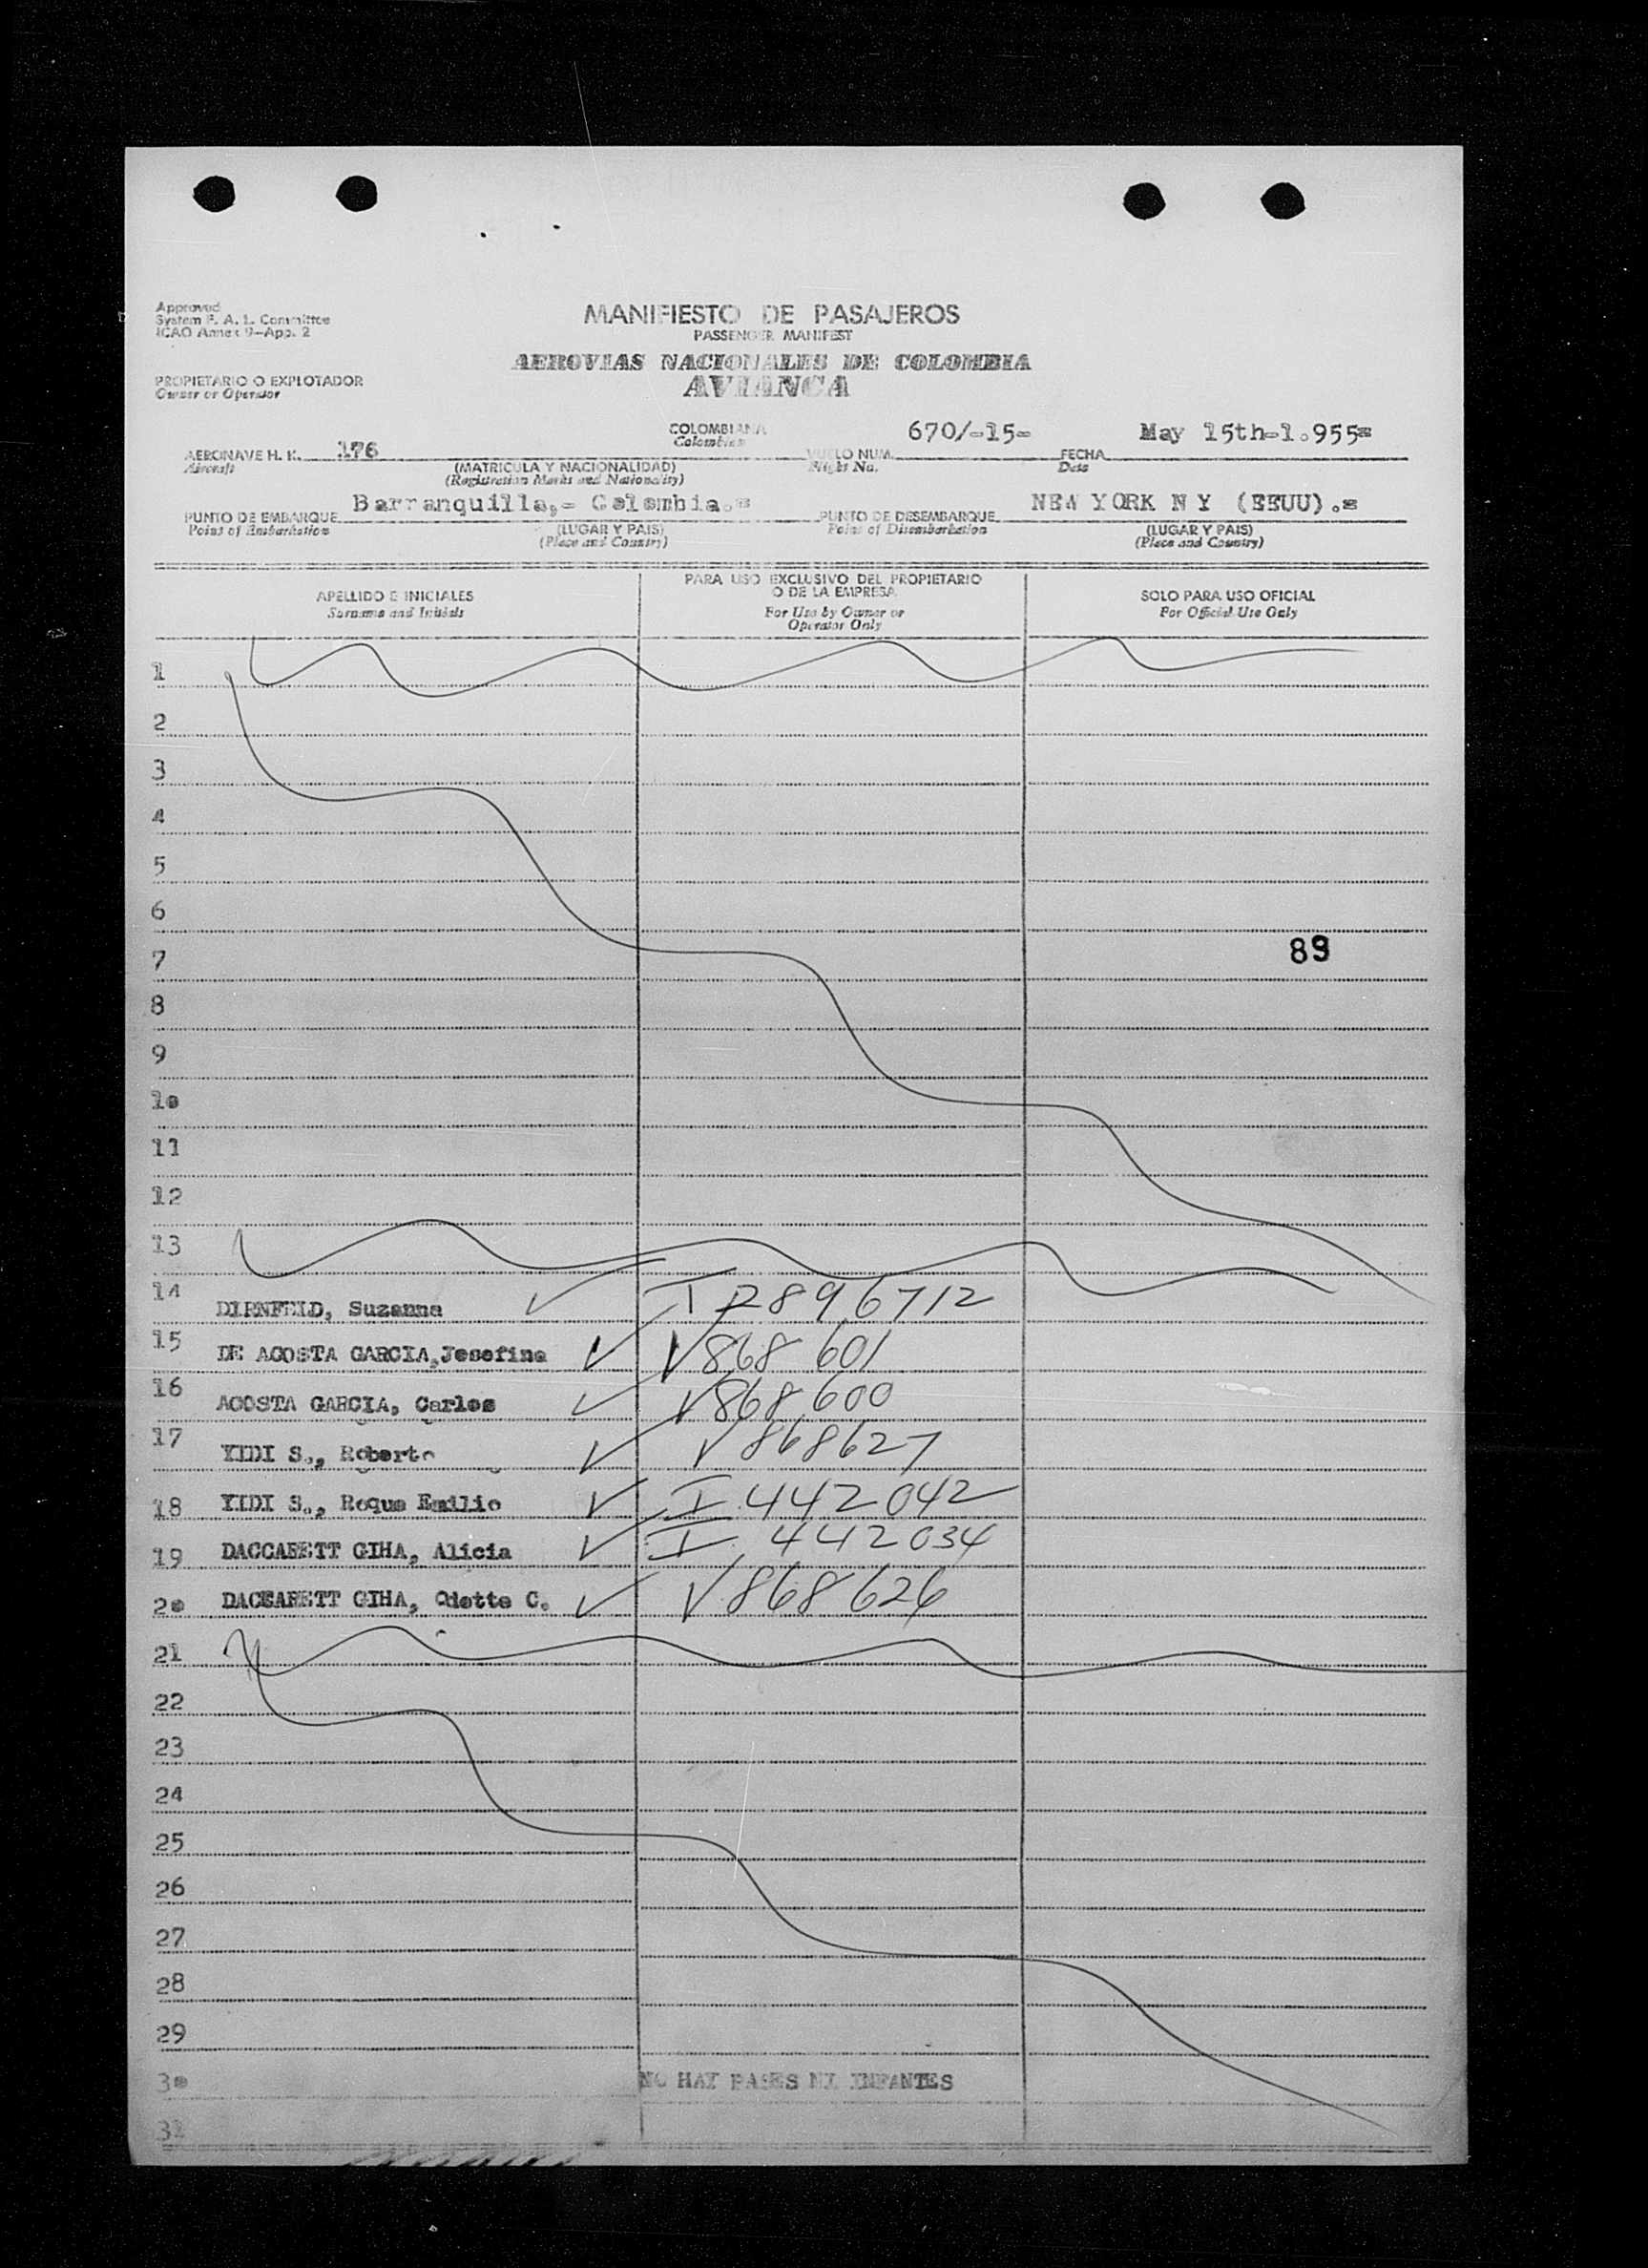 Approved
System F. A. L. Committee
ICAO Annex 9-App. 2
MANIFIESTO DE PASAJEROS
PASSENGER MANIFEST
AEROVIAS NACIONALES DE COLOMBIA
AVIANCA
PROPIETARIO O EXPLOTADOR
Owner or Operator
COLOMBIANA
Colombian
670/-15-
May 15th-1.955=
AERONAVE H. K. 176
Aircraft
(MATRICULA Y NACIONALIDAD)
(Registration Marks and Nationality)
VUELO NUM.
Flight No.
FECHA
Date
PUNTO DE EMBARQUE Barranquilla,- Colombia.=
Point of Embarkation
(LUGAR Y PAIS)
(Place and Country)
PUNTO DE DESEMBARQUE NEW YORK N Y (EEUU).=
Point of Disembarkation
(LUGAR Y PAIS)
(Place and Country)
APELLIDO E INICIALES
Surname and Initials
PARA USO EXCLUSIVO DEL PROPIETARIO
O DE LA EMPRESA
For Use by Owner or
Operator Only
SOLO PARA USO OFICIAL
For Official Use Only
1
2
3
4
5
6
7 89
8
9
10
11
12
13
14 DIRNFELD, Suzanna ✓ I 2896712
15 DE ACOSTA GARCIA,Josefina ✓ V868 601
16 ACOSTA GARCIA, Carlos ✓ V868 600
17 YIDI S., Roberto ✓ V 868627
18 YIDI S., Roque Emilio ✓ I 442 042
19 DACCARETT GIHA, Alicia ✓ I 442034
20 DACCARETT GIHA, Odette C. ✓ V868 626
21
22
23
24
25
26
27
28
29
30 NO HAY PASES NI INFANTES
31